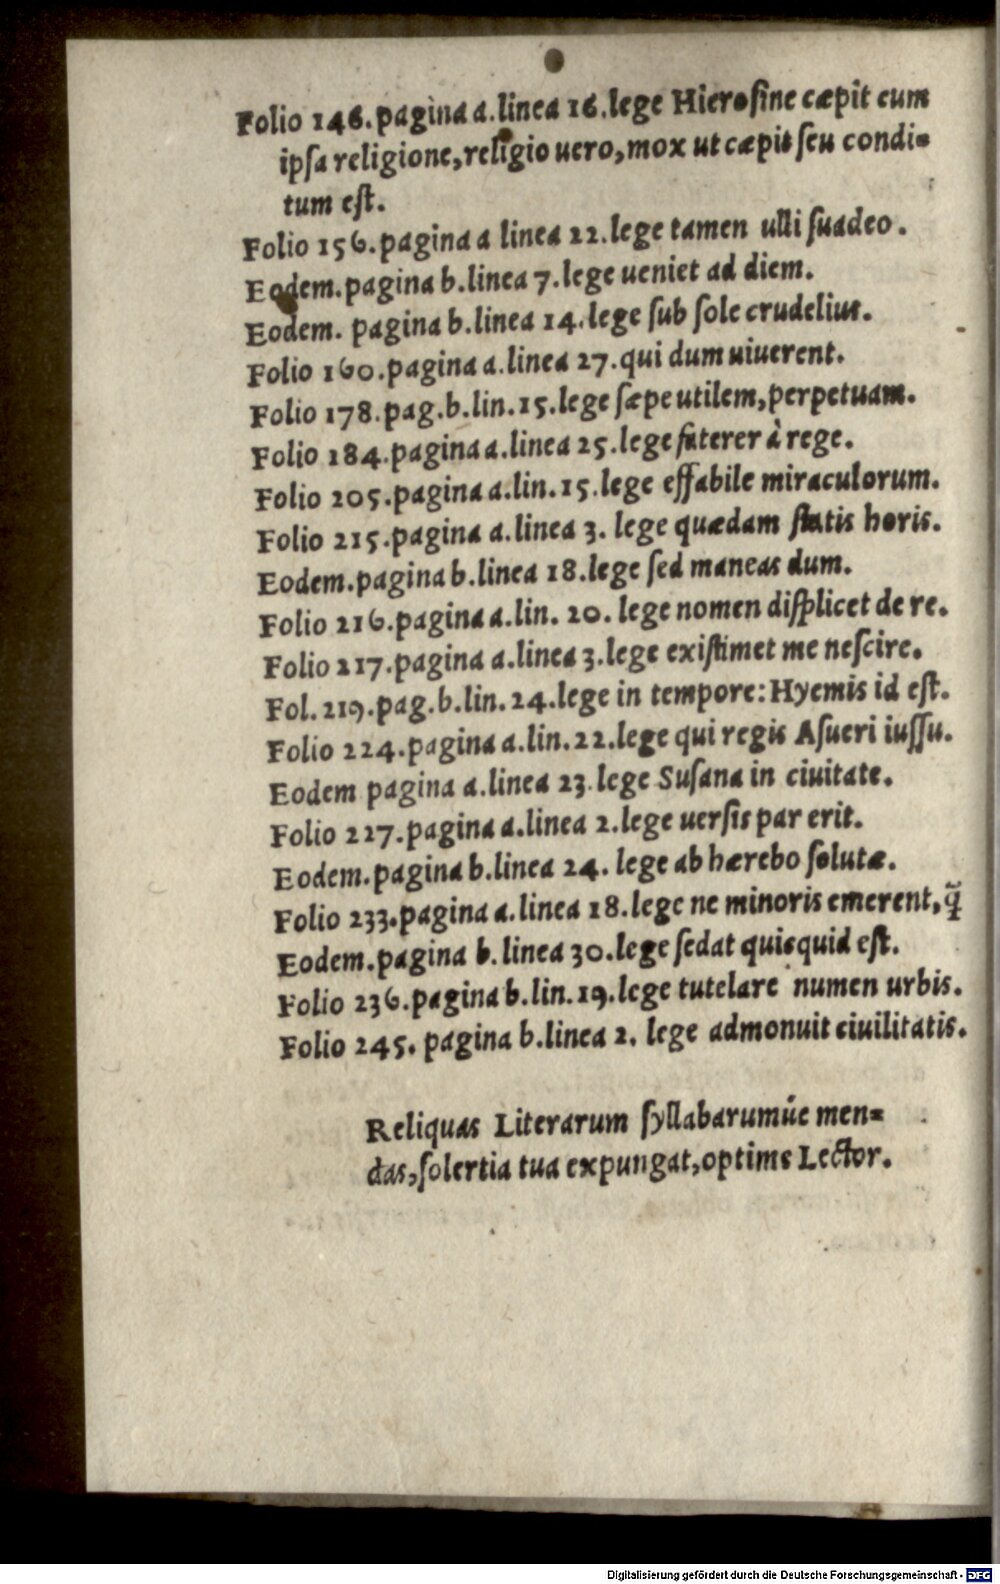 Folio 146.pagina a.linea 16.lege Hierosine cæpit cum
ipsa religione,religio uero,mox ut cæpit seu condi=
tum est.
Folio 156.pagina a linea 22.lege tamen ulli suadeo.
Eodem.pagina b.linea 7.lege ueniet ad diem.
Eodem. pagina b.linea 14.lege sub sole crudelius.
Folio 160.pagina a.linea 27.qui dum uiuerent.
Folio 178.pag.b.lin.15.lege sæpe utilem,perpetuam.
Folio 184.pagina a.linea 25.lege faterer à rege.
Folio 205.pagina a.lin.15.lege effabile miraculorum.
Folio 215.pagina a.linea 3. lege quædam statis horis.
Eodem.pagina b.linea 18.lege sed maneas dum.
Folio 216.pagina a.lin. 20. lege nomen displicet de re.
Folio 217.pagina a.linea 3.lege existimet me nescire.
Fol. 219.pag.b.lin. 24.lege in tempore:Hyemis id est.
Folio 224.pagina a.lin.22.lege qui regis Asueri iussu.
Eodem pagina a.linea 23.lege Susana in ciuitate.
Folio 227.pagina a.linea 2.lege uersis par erit.
Eodem.pagina b.linea 24. lege ab hærebo solutæ.
Folio 233.pagina a.linea 18.lege ne minoris emerent,q̃
Eodem.pagina b. linea 30.lege sedat quisquid est.
Folio 236.pagina b.lin.19.lege tutelare numen urbis.
Folio 245. pagina b.linea 2. lege admonuit ciuilitatis.
Reliquas Literarum syllabarumúe men=
das,solertia tua expungat,optime Lector.
Digitalisierung gefördert durch die Deutsche Forschungsgemeinschaft - DFG